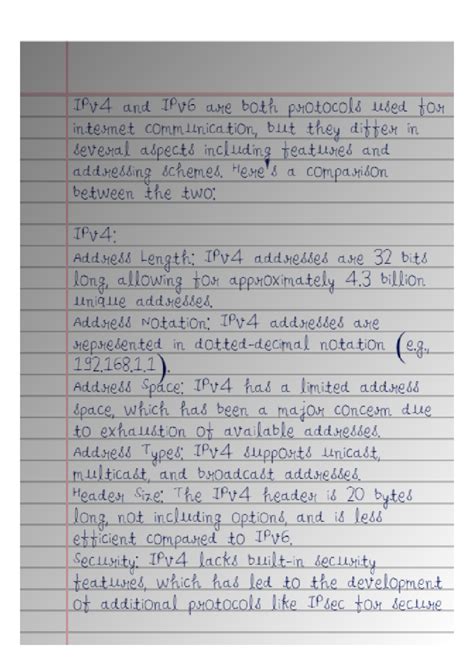 IPv4 and IPv6 are both protocols used for
internet communication, but they differ in
several aspects including features and
addressing schemes. Here's a comparison
between the two:
IPv4:
Address Length: IPv4 addresses are 32 bits
long, allowing for approximately 4.3 billion
unique addresses.
Address Notation: IPv4 addresses are
represented in dotted-decimal notation (e.g.,
192.168.1.1).
Address Space: IPv4 has a limited address
space, which has been a major concern due
to exhaustion of available addresses.
Address Types: IPv4 supports unicast,
multicast, and broadcast addresses.
Header Size: The IPv4 header is 20 bytes
long, not including options, and is less
efficient compared to IPv6.
Security: IPv4 lacks built-in security
features, which has led to the development
of additional protocols like IPsec for secure